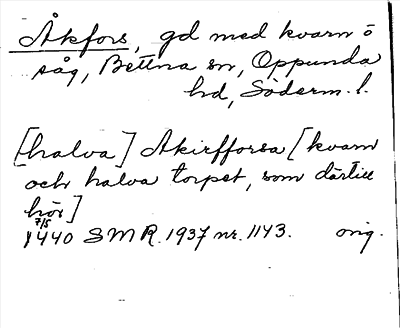 Åkfors, gd med kvarn o
såg, Bettna sn, Oppunda
hd, Söderm. l.
[halva] Akirfforsa [kvarn
och halva torpet, som därtill
hör]
7/5
1440 SMR. 1937 nr. 1143. orig.